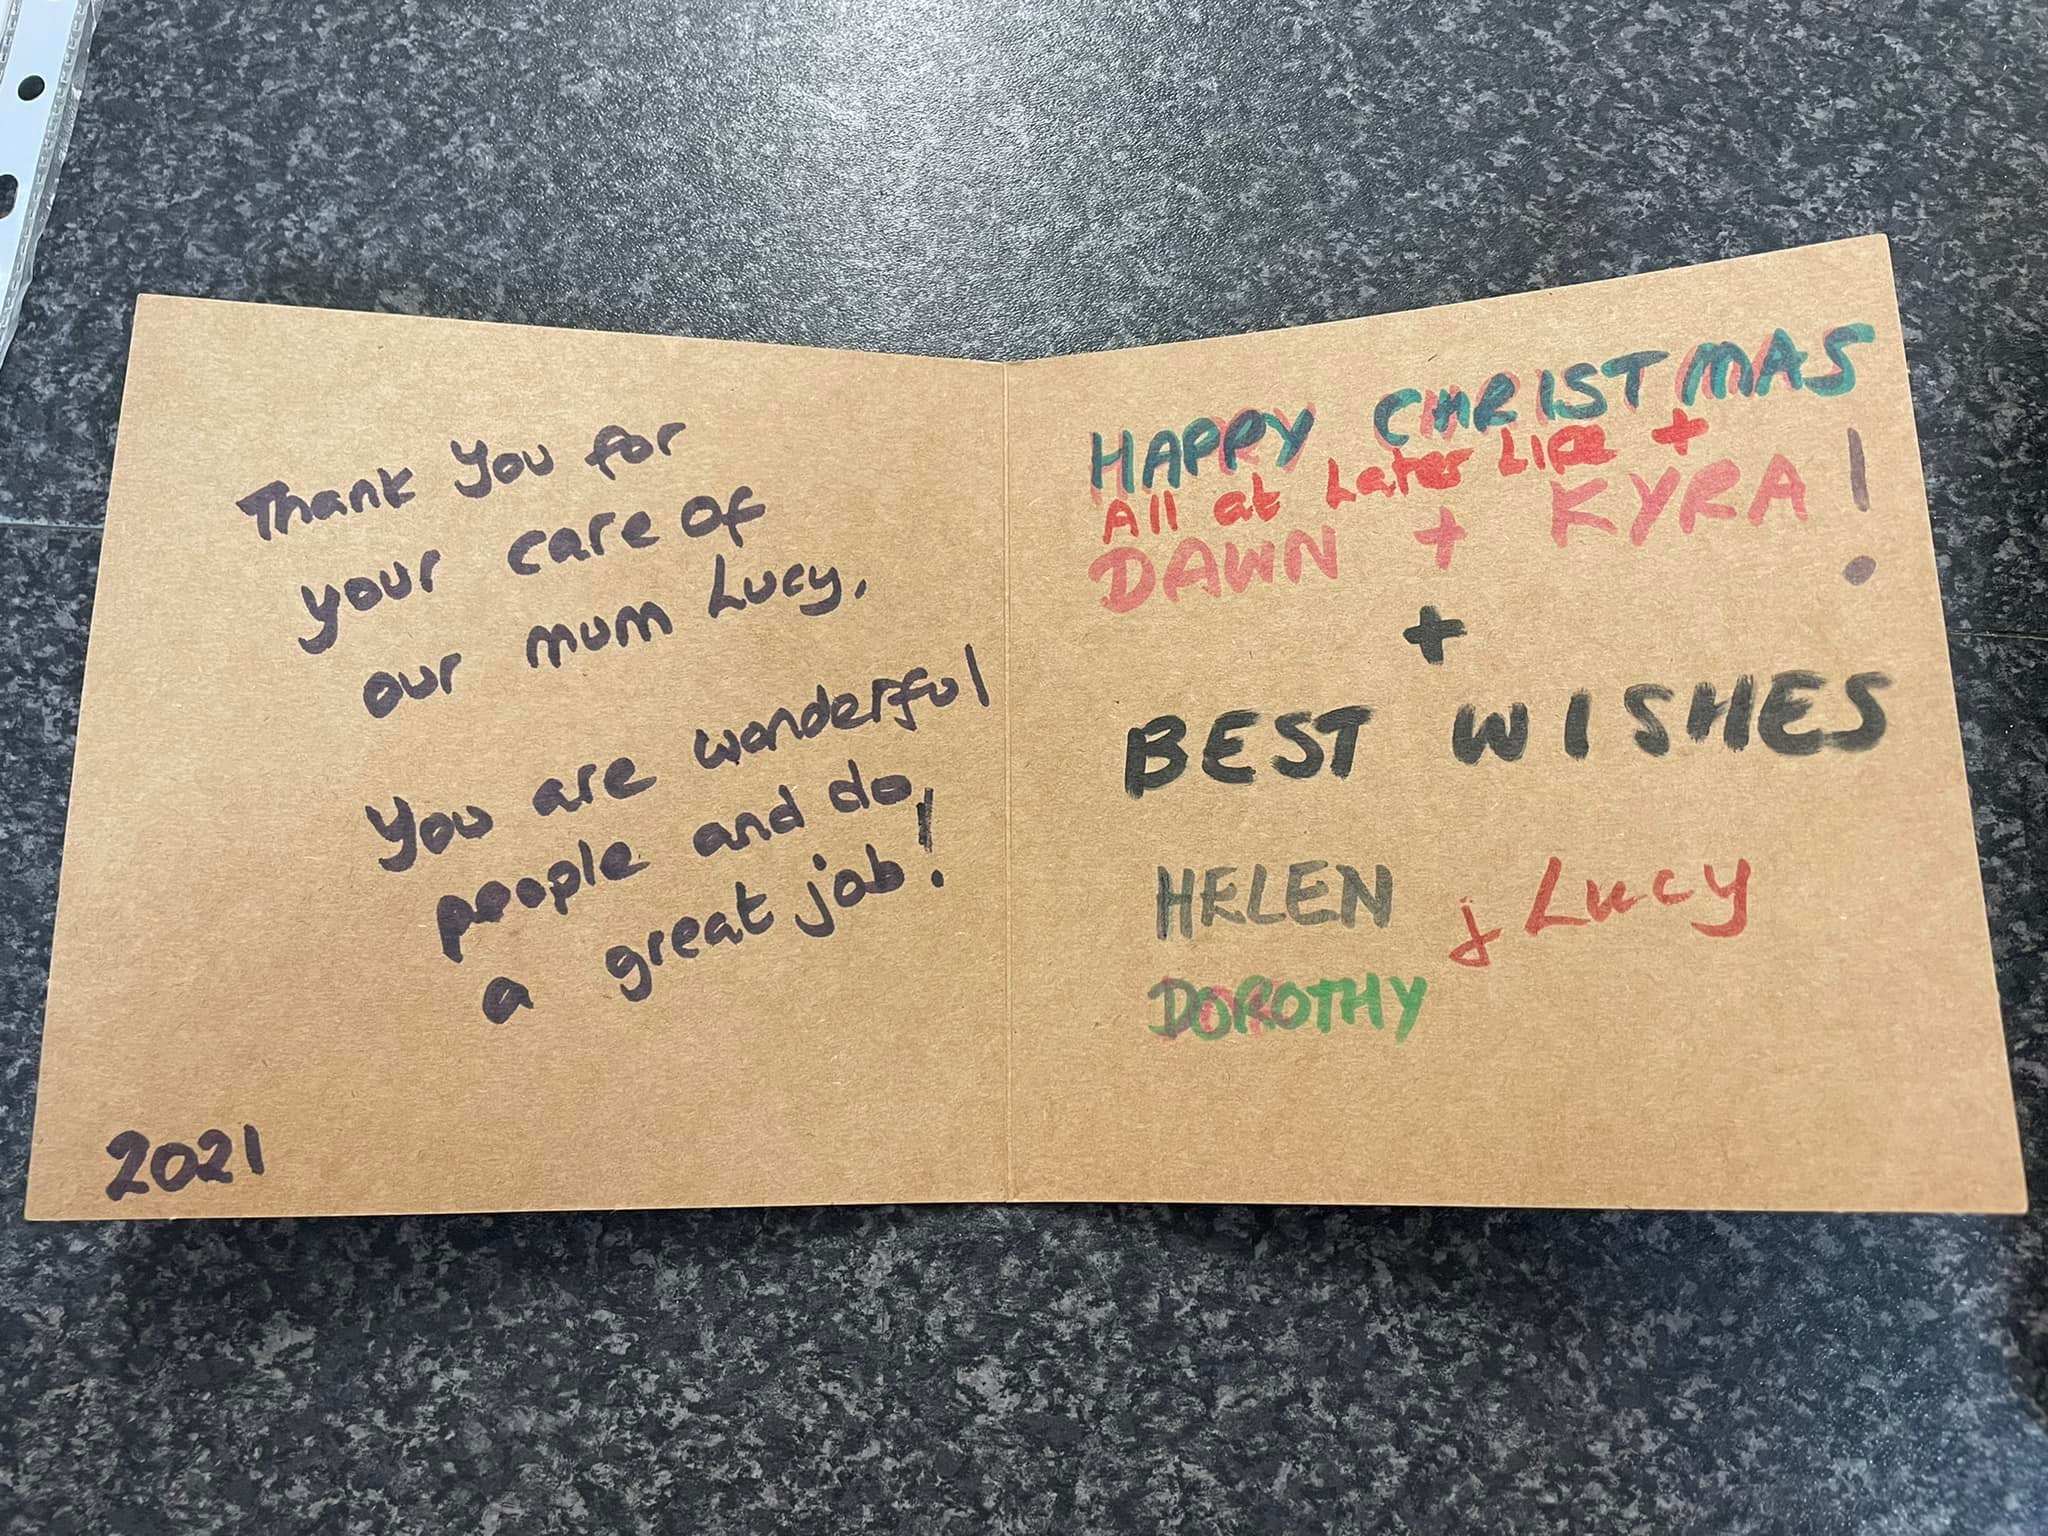 Thank you for
your care of
our mum Lucy.
You are wonderful
people and do
a great job!
2021
HAPPY CHRISTMAS
All at Later LIFE +
DAWN + KYRA!
+
BEST WISHES
HELEN j Lucy
DOROTHY